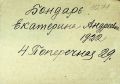 Бондарь
Екатерина Андреевна
1922
4 Поперечная 29.